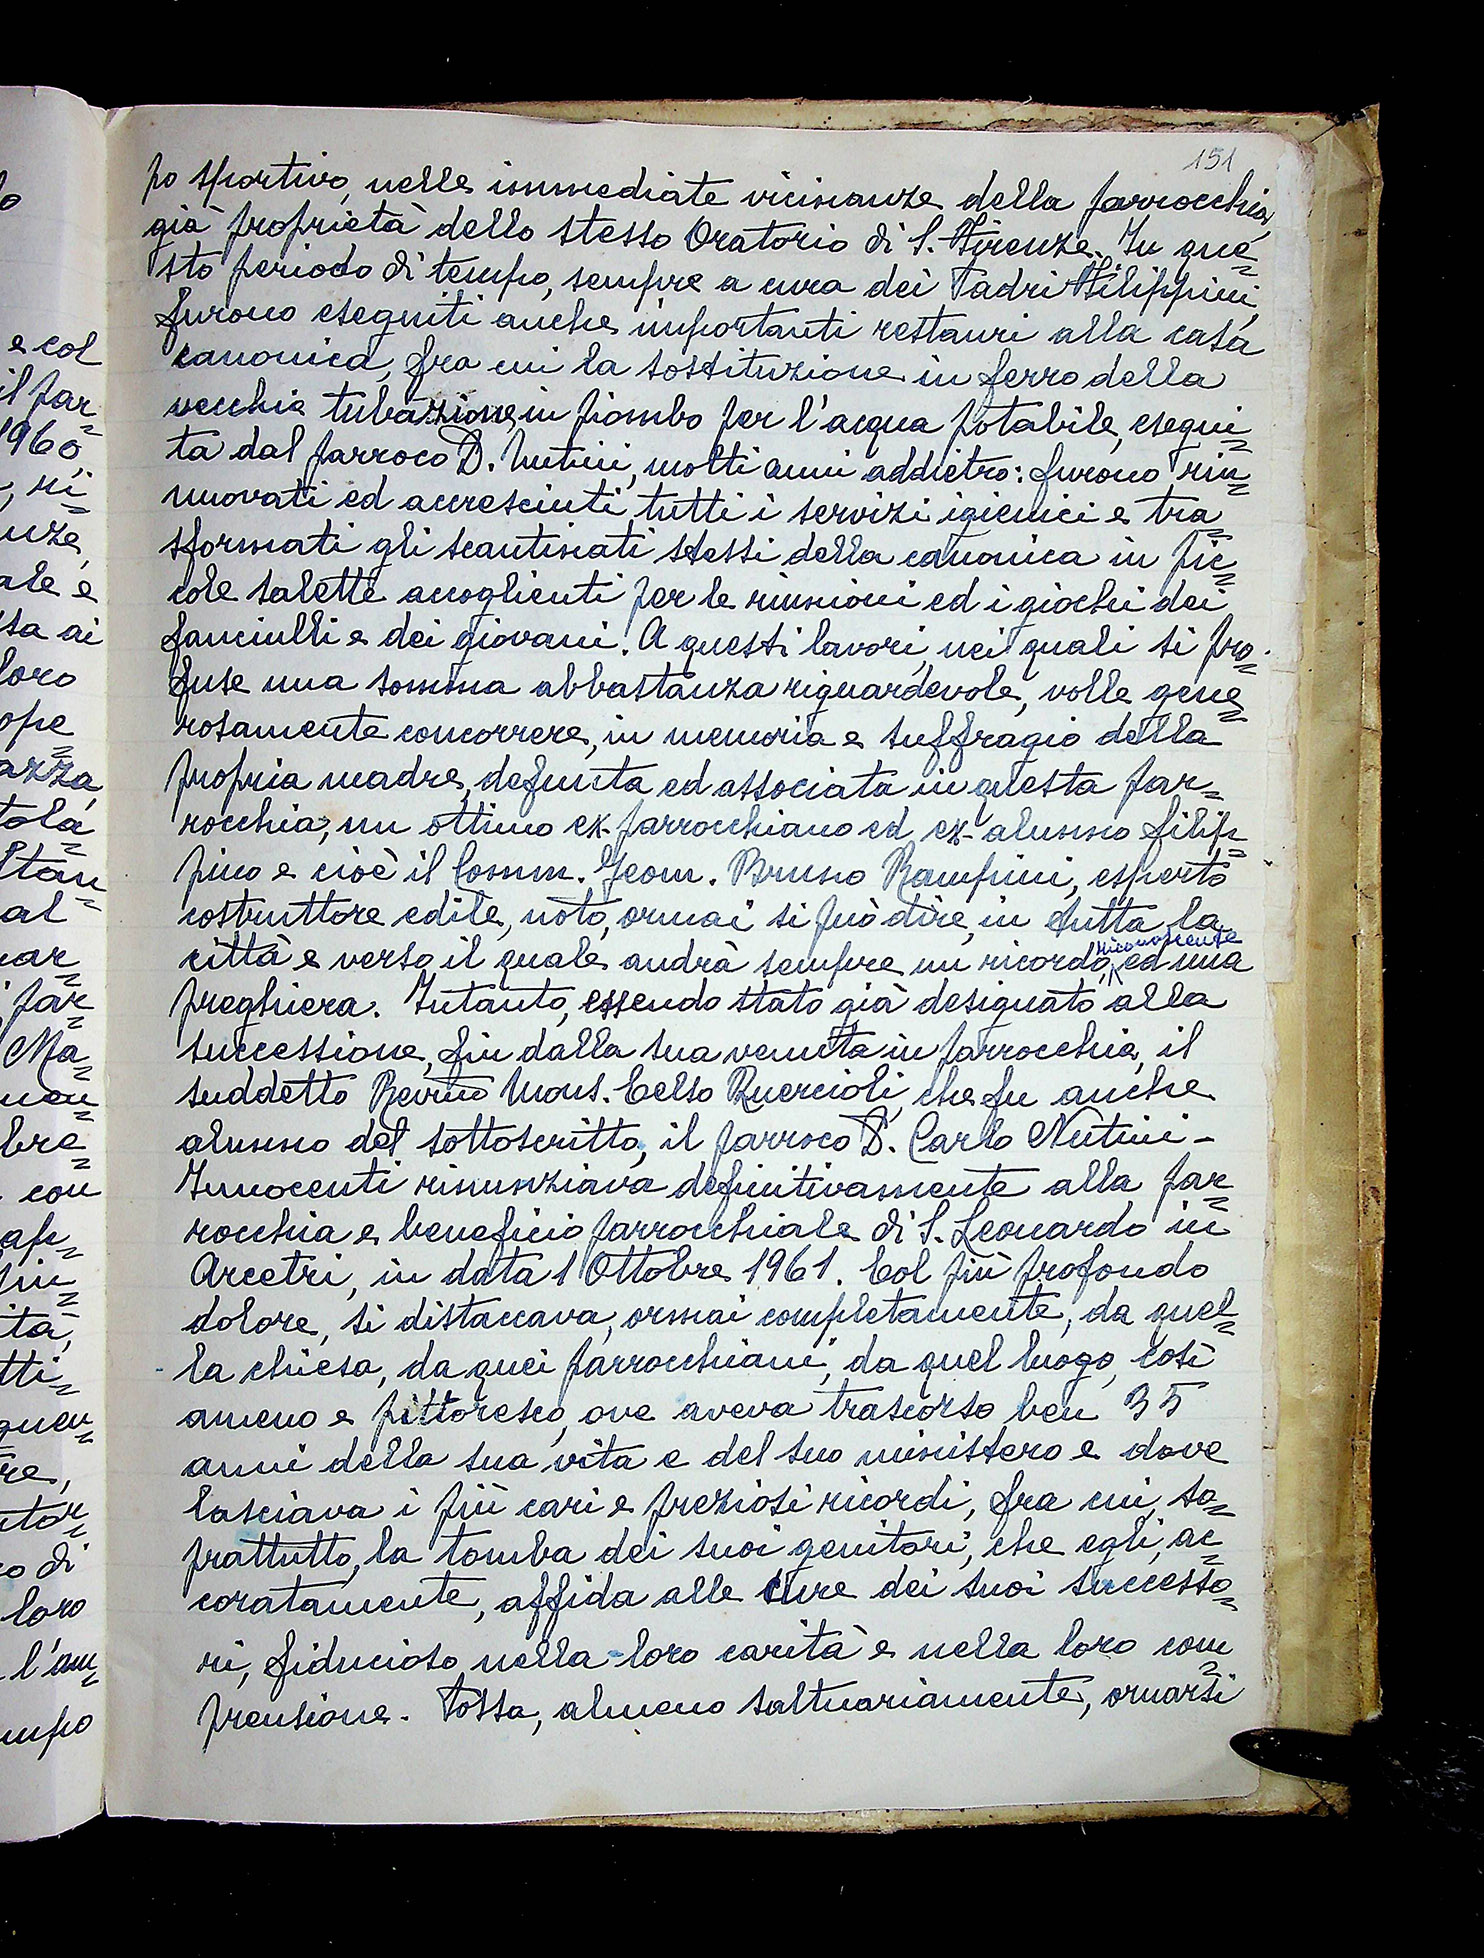 151
po sportivo, nelle immediate vicinanze della parrocchia,
già proprietà dello stesso Oratorio di S. Firenze. In que=
sto periodo di tempo, sempre a cura dei Padri Filippini,
furono eseguiti anche importanti restauri alla casa
canonica, fra cui la sostituzione in ferro della
vecchia tubazione in piombo per l'acqua potabile, esegui=
ta dal parroco D. Nutini, molti anni addietro: furono rin=
nuovati ed accresciuti tutti i servizi igienici e tra=
sformati gli scantinati stessi della canonica in pic=
cole salette accoglienti per le riunioni ed i giochi dei
fanciulli e dei giovani. A questi lavori, nei quali si pro=
fuse una somma abbastanza riguardevole, volle gene=
rosamente concorrere, in memoria e suffragio della
propria madre, defunta ed associata in questa par=
rocchia, un ottimo ex-parrocchiano ed ex-alunno filip=
pino e cioè il Comm. Geom. Bruno Rampini, esperto
costruttore edile, noto, ormai si può dire, in tutta la
città e verso il quale andrà sempre un ricordo riconoscente ed una
preghiera. Intanto, essendo stato già designato alla
successione, fin dalla sua venuta in parrocchia, il
suddetto Rev.mo Mons. Celso Quercioli, che fu anche
alunno del sottoscritto, il parroco D. Carlo Nutini-
Innocenti rinunziava definitivamente alla par=
rocchia e beneficio parrocchiale di S. Leonardo in
Arcetri, in data 1 Ottobre 1961. Col più profondo
dolore, si distaccava, ormai completamente, da quel=
la chiesa, da quei parrocchiani, da quel luogo, così
ameno e pittoresco, ove aveva trascorso ben 35
anni della sua vita e del suo ministero e dove
lasciava i più cari e preziosi ricordi, fra cui, so=
prattutto, la tomba dei suoi genitori, che egli, ac=
coratamente, affida alle cure dei suoi successo=
ri, fiducioso nella loro carità e nella loro com=
prensione. Possa, almeno saltuariamente, ornarsi